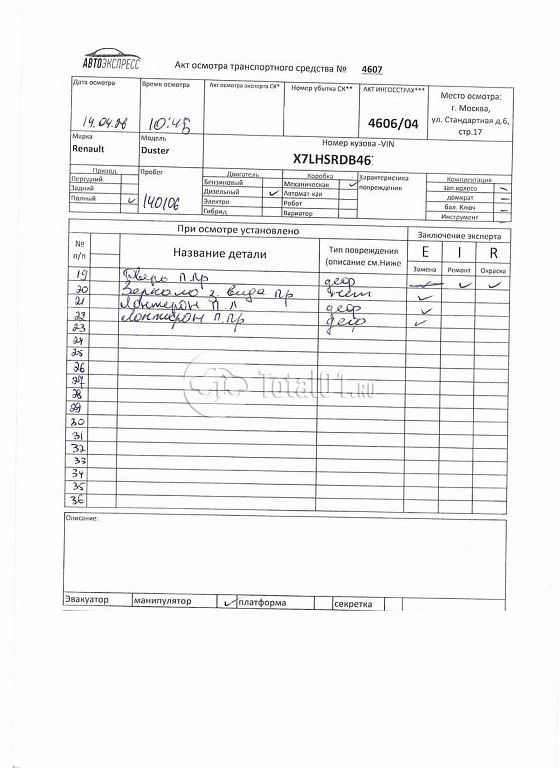 АВТОЭКСПРЕСС
Акт осмотра транспортного средства № 4607
Дата осмотра
Время осмотра
Акт осмотра эксперта СК*
Номер убытка СК**
АКТ ИНГОССТРАХ***
Место осмотра:
г. Москва,
ул. Стандартная д.6,
стр.17
14.04.26
10:45
4606/04
Марка
Модель
Номер кузова -VIN
Renault
Duster
X7LHSRDB46
Привод
Пробег
Двигатель
Коробка
Характеристика повреждения
Комплектация
Передний
Бензиновый
Механическая ✓
зап.колесо –
Задний
Дизельный ✓
Автомат-кая
домкрат –
Полный ✓
140106
Электро
Робот
бал. Ключ –
Гибрид
Вариатор
Инструмент –
При осмотре установлено
Заключение эксперта
№ п/п
Название детали
Тип повреждения
(описание см.Ниже
E I R
Замена Ремонт Окраска
19 Дверь П.Пр деф ✓ ✓
20 Зеркало з. вида Пр нет ✓
21 Лонжерон П.Л деф ✓
22 Лонжерон П.Пр деф ✓
23
24
25
26
27
28
29
30
31
32
33
34
35
36
Total01.RU
Описание:
Эвакуатор манипулятор ✓ платформа секретка